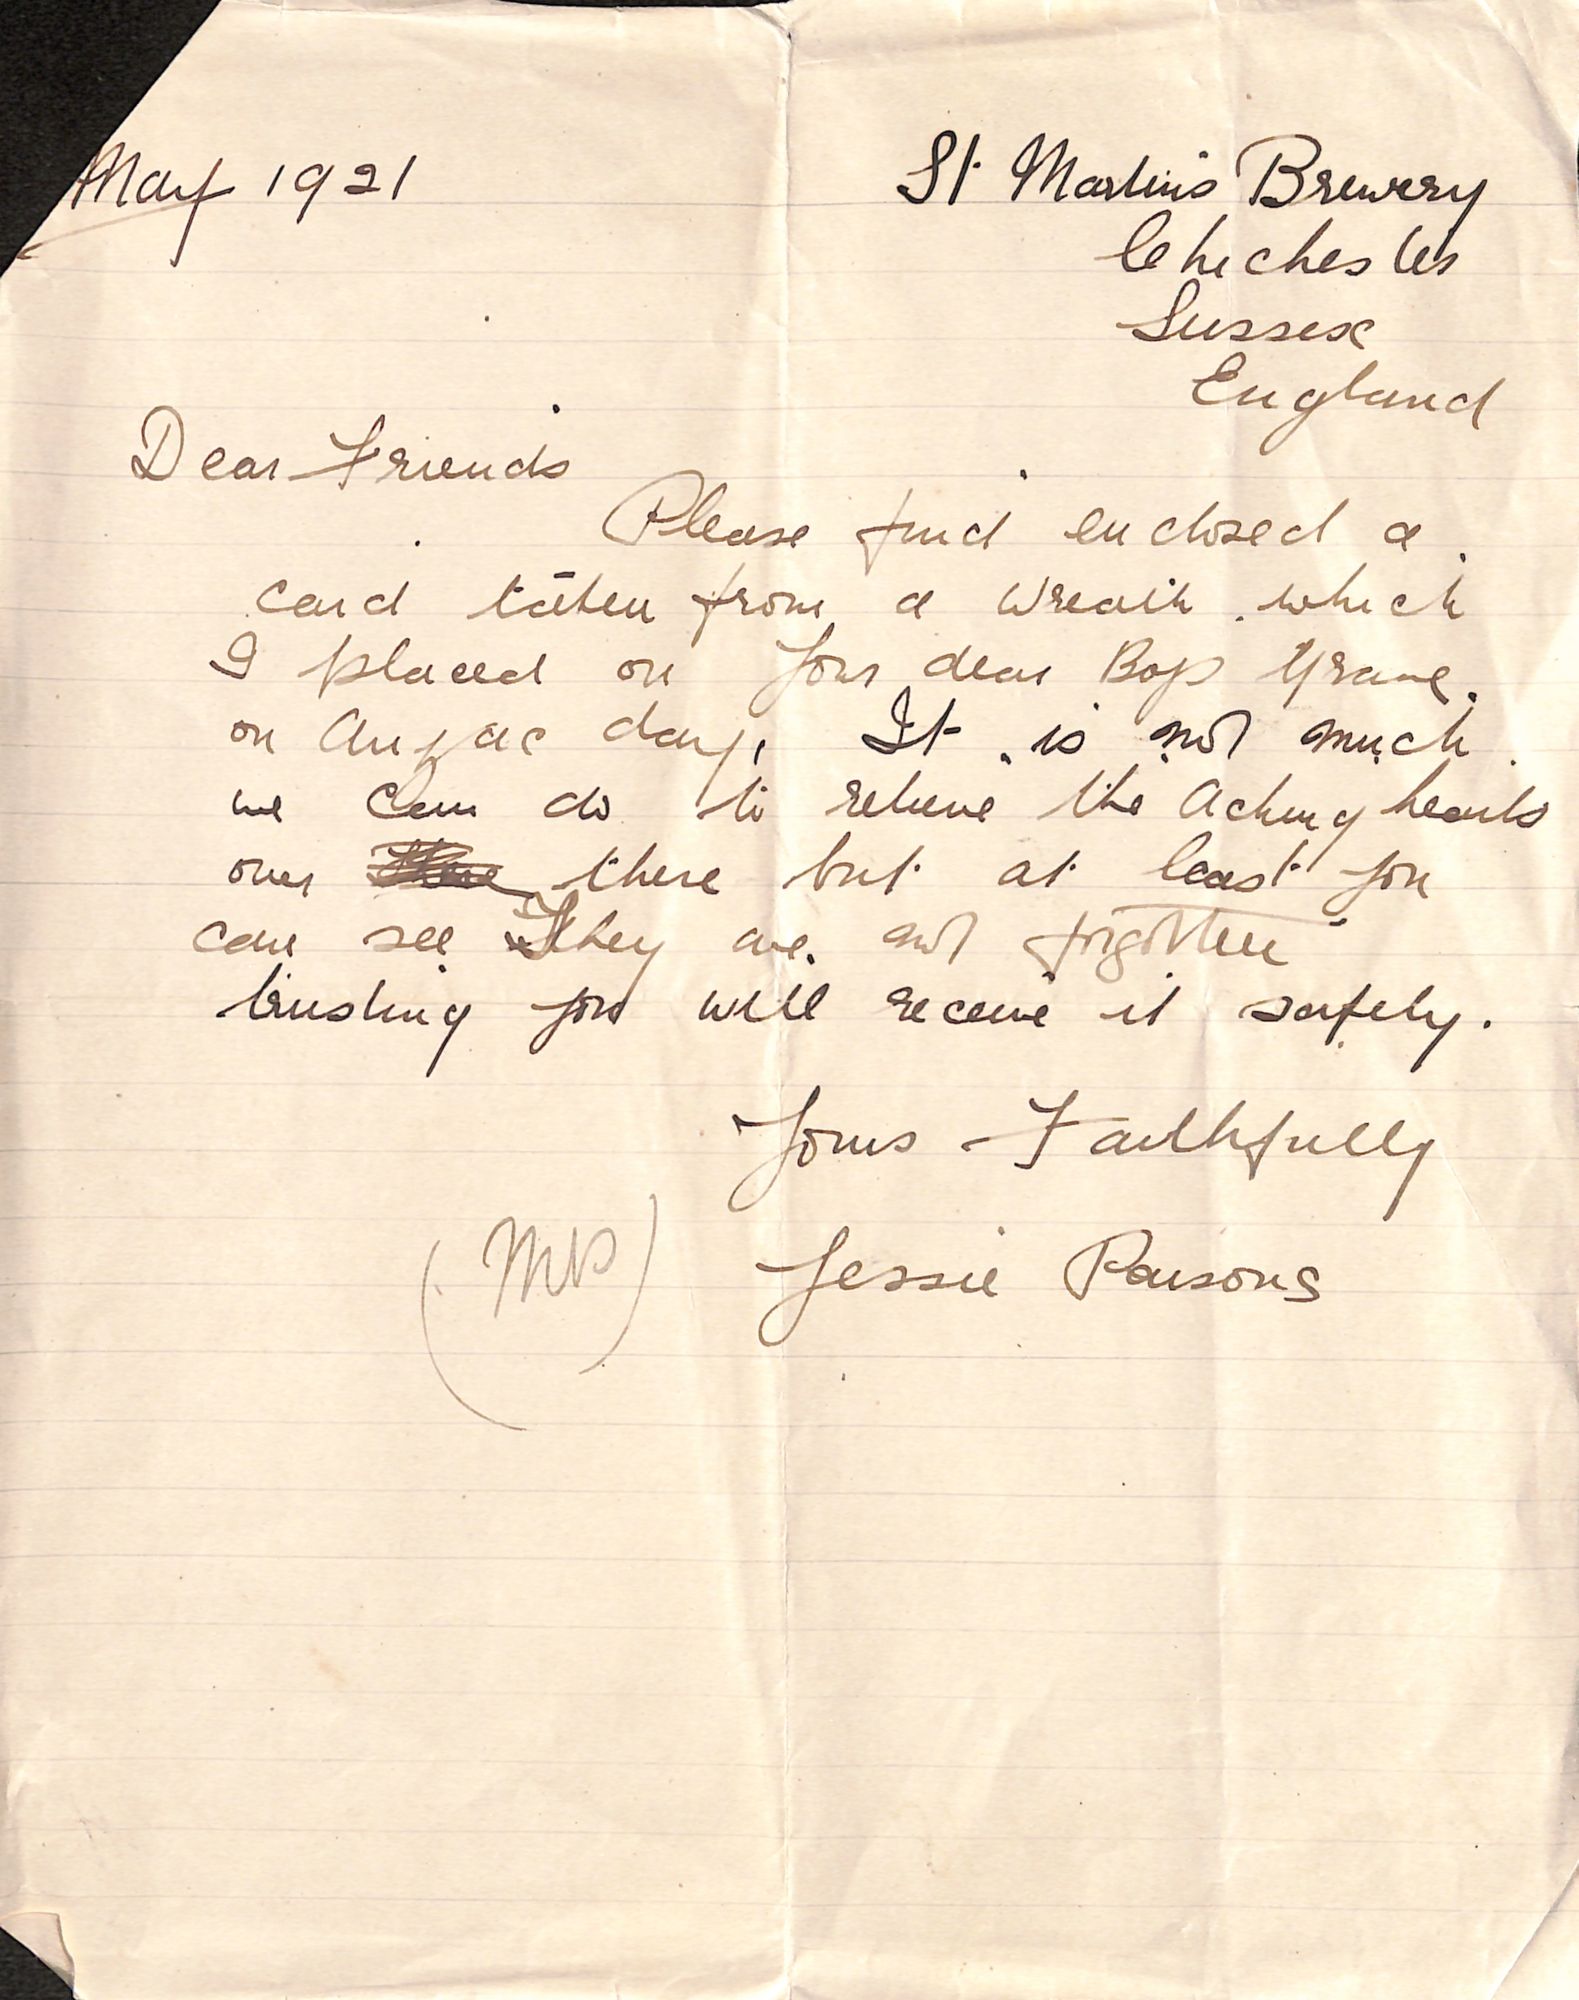 May 1921
St Martins Brewery
Chichester
Sussex
England
Dear Friends
Please find enclosed a
card taken from a Wreath which
I placed on your dear Boys Grave
on Anzac day, It is not much
we can do to relieve the Aching hearts
over there there but at least you
can see They are not forgotten
trusting you will receive it safely.
Yours Faithfully
(Mrs) Jessie Parsons